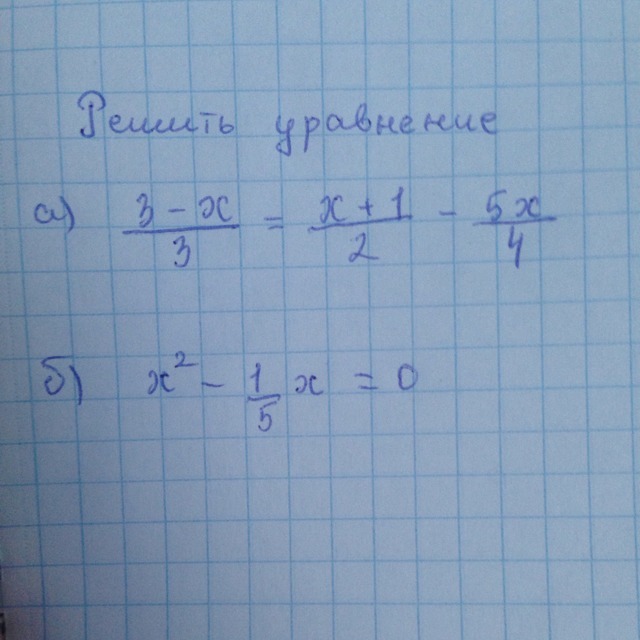 Решить уравнение
а) (3 - x)/3 = (x + 1)/2 - 5x/4
б) x² - 1/5 x = 0